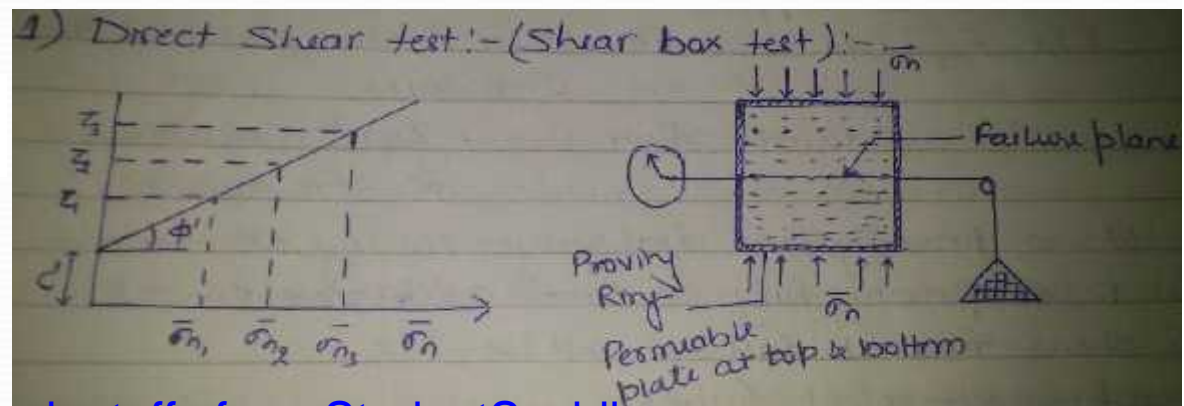 1) Direct Shear test:- (Shear box test):-
σ̅n
τ3
τ2
τ1
φ'
c'
σ̅n1 σ̅n2 σ̅n3 σ̅n
Failure plane
Proving
Ring
σ̅n
Permeable
plate at top & bottom